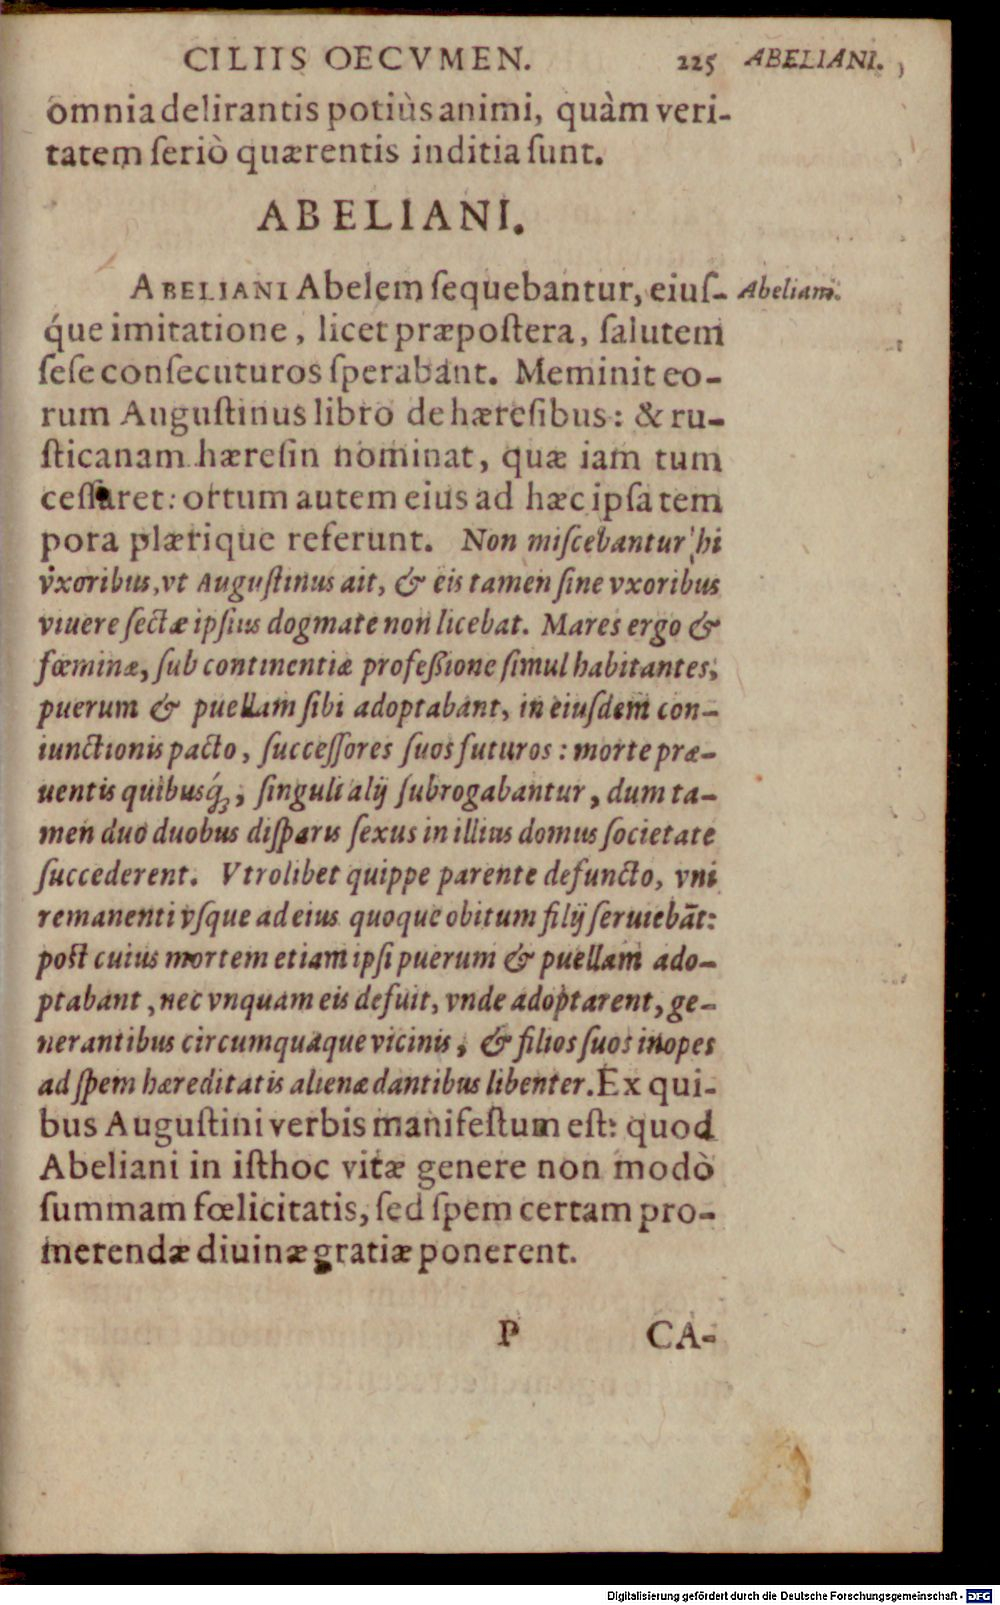 CILIIS OECVMEN. 225 ABELIANI.
omnia delirantis potiùs animi, quàm veri-
tatem seriò quærentis inditia sunt.
ABELIANI.
ABELIANI Abelem sequebantur, eius- Abeliani.
q́ue imitatione, licet præpostera, salutem
sese consecuturos sperabant. Meminit eo-
rum Augustinus libro de hæresibus: & ru-
sticanam hæresin nominat, quæ iam tum
cessaret: ortum autem eius ad hæc ipsa tem
pora plærique referunt. Non miscebantur hi
vxoribus, vt Augustinus ait, & eis tamen sine vxoribus
viuere sectæ ipsius dogmate non licebat. Mares ergo &
fœminæ, sub continentiæ professione simul habitantes,
puerum & puellam sibi adoptabant, in eiusdem con-
iunctionis pacto, successores suos futuros: morte præ-
uentis quibusq́;, singuli alij subrogabantur, dum ta-
men duo duobus disparis sexus in illius domus societate
succederent. Vtrolibet quippe parente defuncto, vni
remanenti vsque ad eius quoque obitum filij seruiebāt:
post cuius mortem etiam ipsi puerum & puellam ado-
ptabant, nec vnquam eis defuit, vnde adoptarent, ge-
nerantibus circumquaque vicinis, & filios suos inopes
ad spem hæreditatis alienæ dantibus libenter. Ex qui-
bus Augustini verbis manifestum est: quod
Abeliani in isthoc vitæ genere non modò
summam fœlicitatis, sed spem certam pro-
merendæ diuinæ gratiæ ponerent.
P CA-
Digitalisierung gefördert durch die Deutsche Forschungsgemeinschaft - DFG